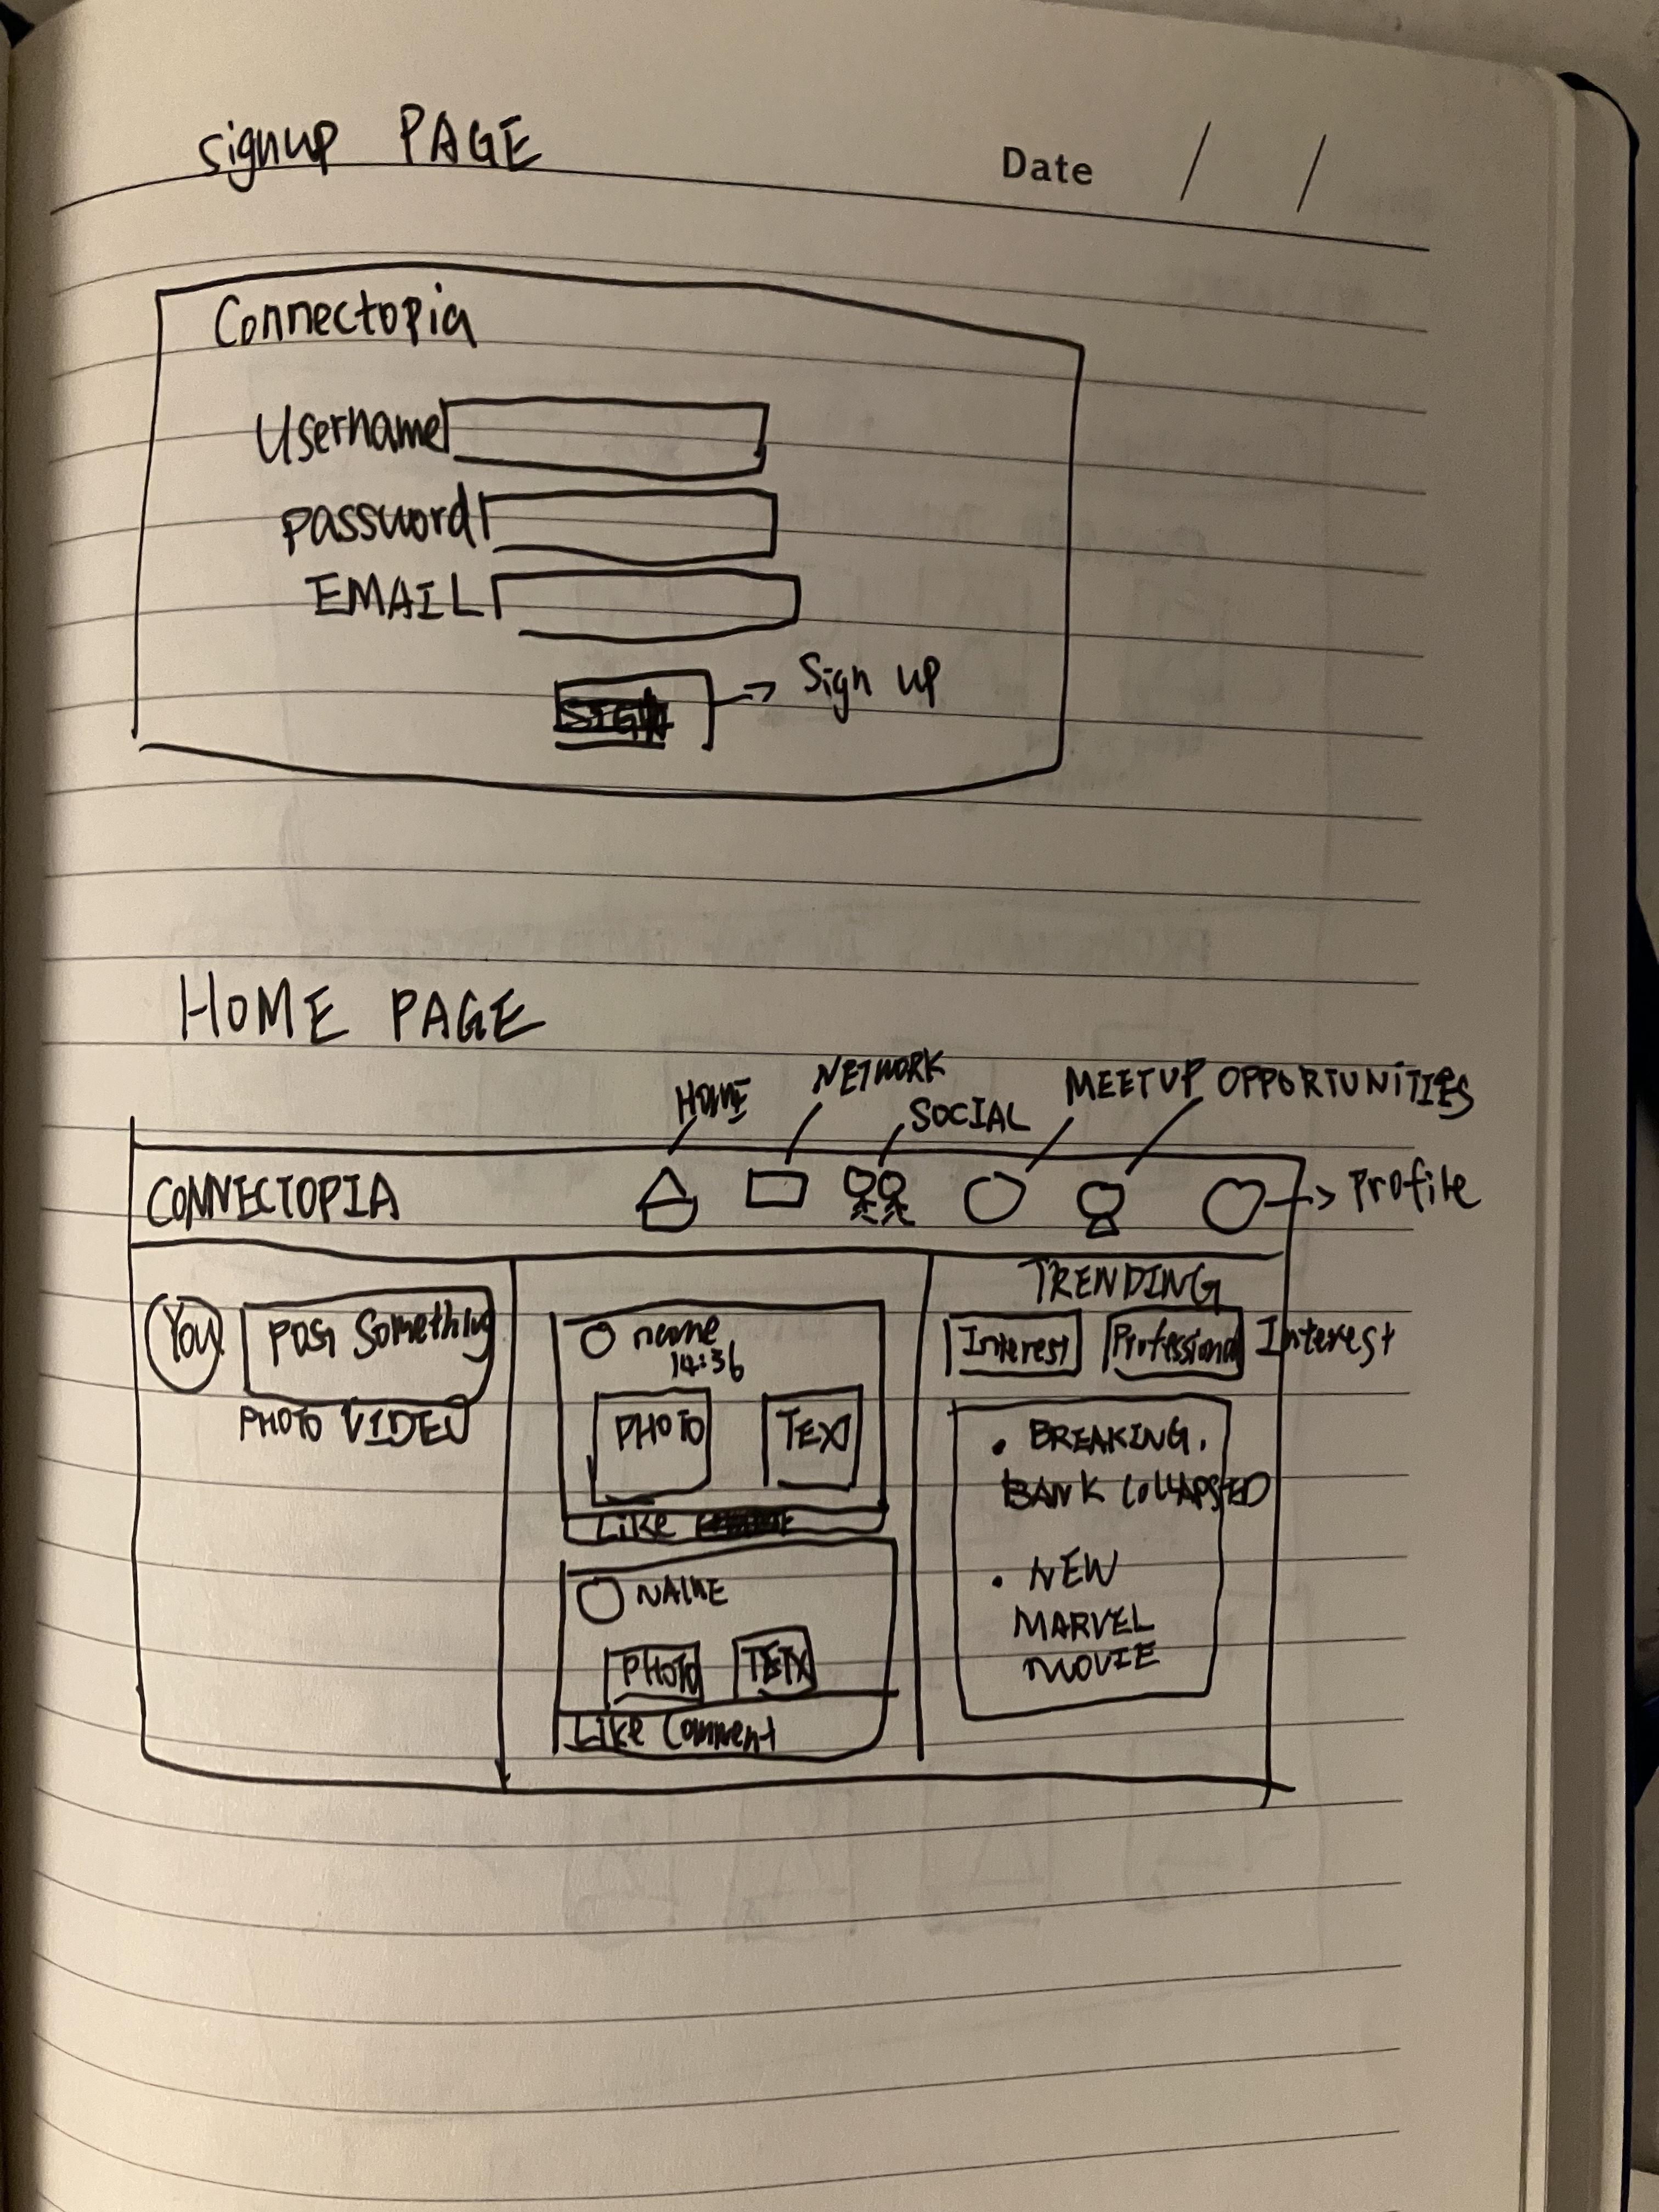 signup PAGE
Date / /
Connectopia
Username
password
EMAIL
Sign up
HOME PAGE
HOME
NETWORK
SOCIAL
MEETUP OPPORTUNITIES
CONNECTOPIA
Profile
You
Post Something
PHOTO VIDEO
name
14:36
PHOTO
TEXT
LIKE
NAME
PHOTO
Like Comment
TRENDING
Interest
Professional Interest
• BREAKING.
BANK COLLAPSED
• NEW
MARVEL
MOVIE